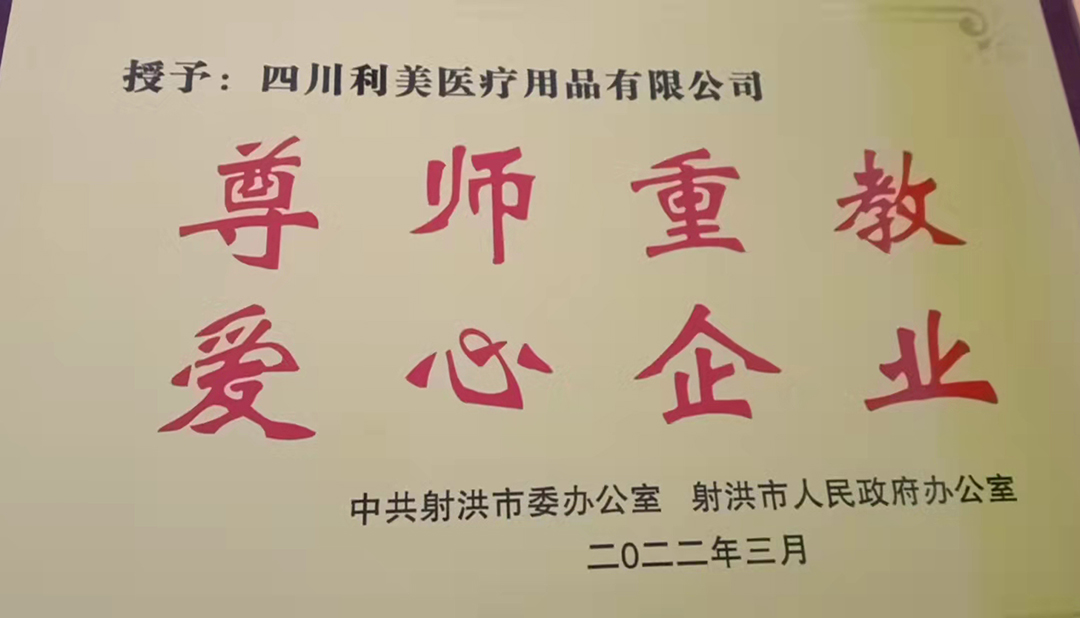 授予：四川利美医疗用品有限公司
尊师重教
爱心企业
中共射洪市委办公室 射洪市人民政府办公室
二〇二二年三月